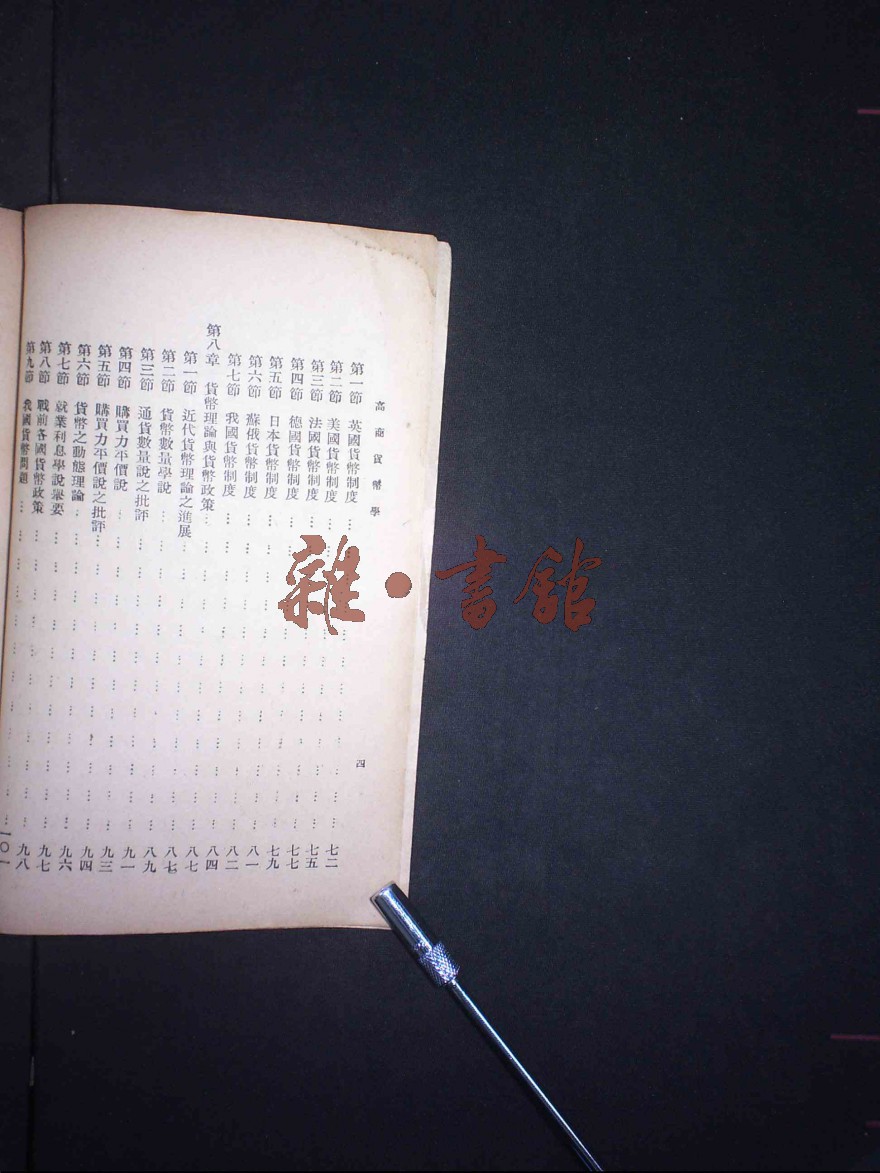 高商貨幣學
四
第一節　英國貨幣制度……七二
第二節　美國貨幣制度……七五
第三節　法國貨幣制度……七七
第四節　德國貨幣制度……七九
第五節　日本貨幣制度……八一
第六節　蘇俄貨幣制度……八二
第七節　我國貨幣制度……八四
第八章　貨幣理論與貨幣政策……八七
第一節　近代貨幣理論之進展……八七
第二節　貨幣數量學說……八九
第三節　通貨數量說之批評……九一
第四節　購買力平價說……九三
第五節　購買力平價說之批評……九四
第六節　貨幣之動態理論……九六
第七節　就業利息學說舉要……九七
第八節　戰前各國貨幣政策……九八
第九節　我國貨幣問題……一〇一
雜·書館